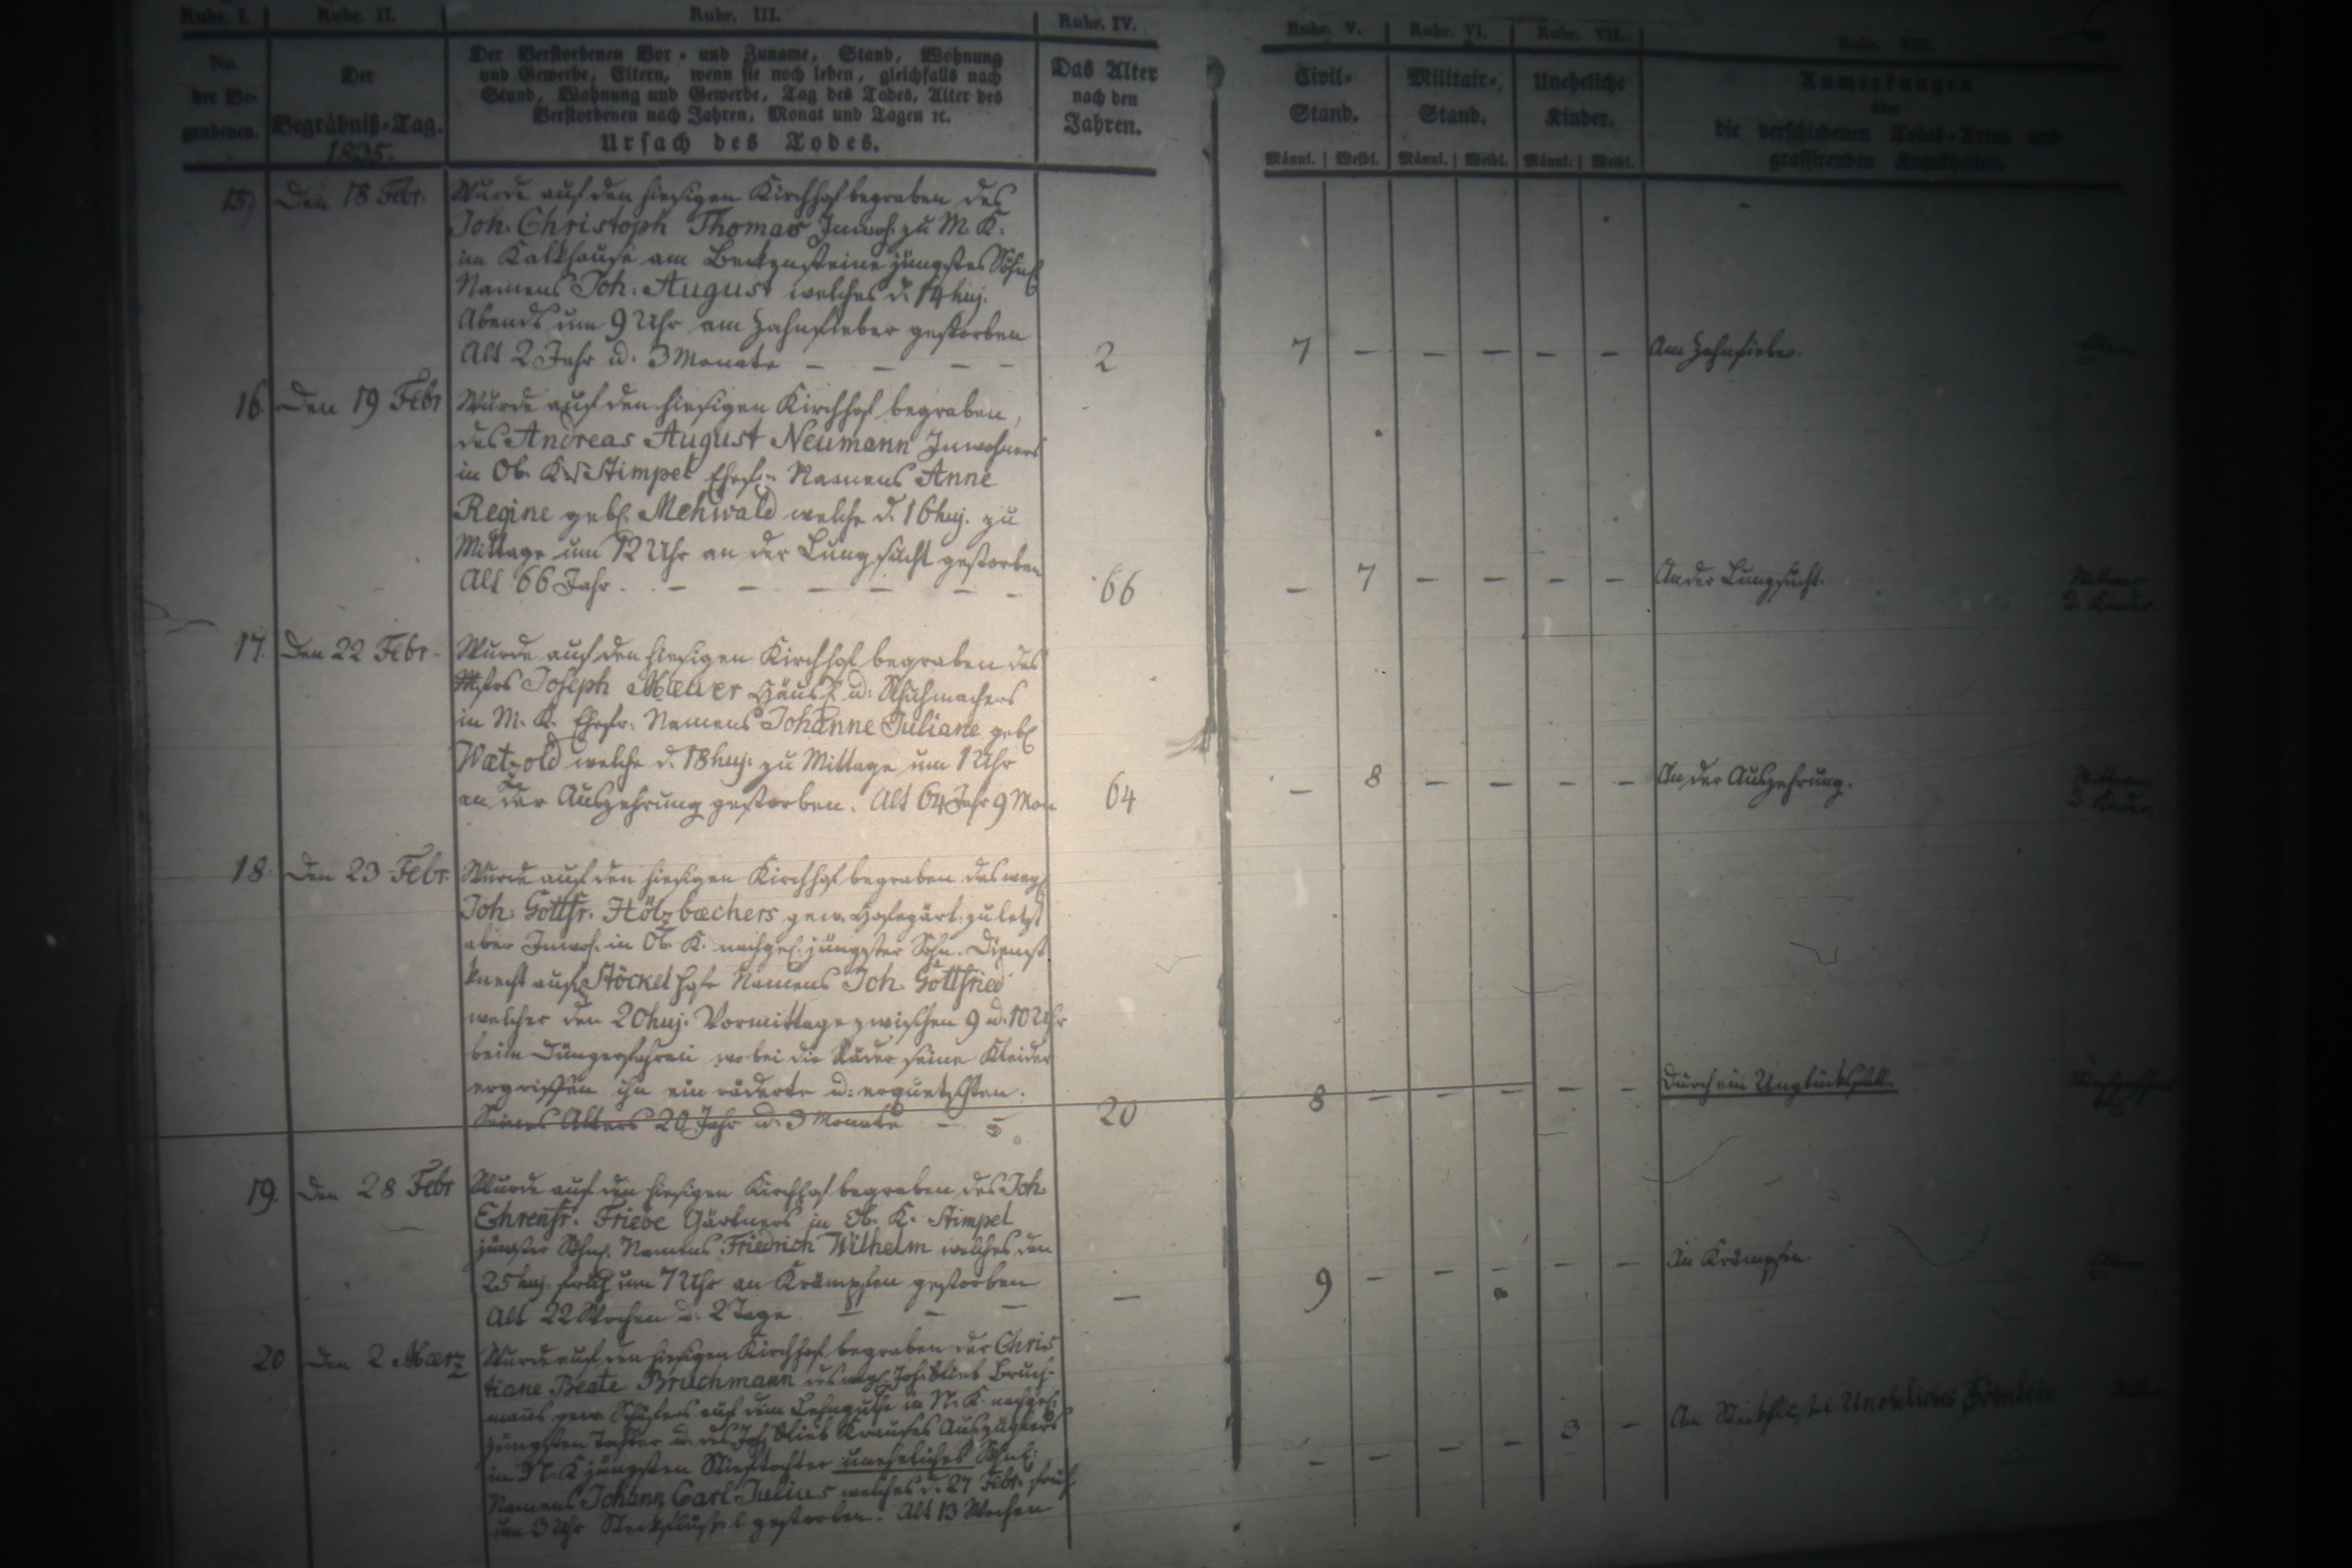 Rubr. I. Rubr. II. Rubr. III. Rubr. IV. Rubr. V. Rubr. VI. Rubr. VII. Rubr. VIII.
No. der Be- grabenen.
Der Begräbniß-Tag.
1835.
Der Verstorbenen Vor- und Zuname, Stand, Wohnung
und Gewerbe, Eltern, wenn sie noch leben, gleichfalls nach
Stand, Wohnung und Gewerbe, Tag des Todes, Alter des
Verstorbenen nach Jahren, Monat und Tagen ꝛc.
Ursach des Todes.
Das Alter
nach den
Jahren.
Civil-
Stand.
Militair-
Stand.
Uneheliche
Kinder.
Anmerkungen
über
die verschiedenen Todes-Arten und
grassirenden Krankheiten.
Männl. | Weibl. Männl. | Weibl. Männl. | Weibl.
15) Den 18 Febr. Wurde auf den hiesigen Kirchhof begraben des
Joh. Christoph Thomas Inwoh. zu M. K.
im Kalkhause am Beckensteine jüngstes Söhnl
Namens Joh. August welches d. 14 huj.
Abends um 9 Uhr am Zahnfieber gestorben
Alt 2 Jahr u. 3 Monate – – – – 2 7 – – – – – Am Zahnfieber. Eltern
16. Den 19 Febr Wurde auf den hiesigen Kirchhof begraben,
des Andreas August Neumann Inwohners
in Ob. K. Stimpel Ehefr. Namens Anne
Regine geb. Mehwald welche d. 16 huj. zu
Mittage um 12 Uhr an der Lungsucht gestorben
Alt 66 Jahr. – – – – – – 66 – 7 – – – – An der Lungsucht.
17. Den 22 Febr. Wurde auf den hiesigen Kirchhof begraben des
Mstrs Joseph Mewer Häusl. u. Schuhmachers
in M. K. Ehefr. Namens Johanne Juliane geb.
Wætzold welche d. 18 huj. zu Mittage um 1 Uhr
an der Auszehrung gestorben. Alt 64 Jahr 9 Mon 64 – 8 – – – – An der Auszehrung.
18. Den 23 Febr. Wurde auf den hiesigen Kirchhof begraben des weyl.
Joh. Gottfr. Hölzbæchers gew. Hofegärt. zuletzt
aber Inwoh. in Ob. K. nachgel. jüngster Sohn. Dienst
knecht auf Stöckel Namens Joh. Gottfried
welcher den 20 huj. Vormittage zwischen 9 u. 10 Uhr
beim Düngerfahren wobei die Räder seine Kleider
ergriffen ihn ein räderte u. erquetschten.
Seines Alters 20 Jahr u. 3 Monate – – 20 8 – – – – – Durch ein Unglücksfall.
19. Den 28 Febr Wurde auf den hiesigen Kirchhof begraben des Joh.
Ehrenfr. Friebe Gärtners in Ob. K. Stimpel
jüngster Söhnl. Namens Friedrich Wilhelm welches den
25 huj. früh um 7 Uhr an Krämpfen gestorben
Alt 22 Wochen u. 2 Tage – – – – 9 – – – – – An Krämpfen. Eltern
20 Den 2 Mærz Wurde auf den hiesigen Kirchhof begraben der Chris
tiane Beate Bruchmann des weyl. Joh. Glieb Bruch-
manns gew. Schäfers auf dem Lehngute in N. K. nachgel.
jüngsten Tochter u. des Joh. Glieb Krauses Auszüglers
in N. K jüngsten Stieftochter uneheliches Söhnl.
Namens Johann Carl Julius welches d. 27 Febr. früh
um 3 Uhr Steckflussel gestorben. Alt 13 Wochen – – – – 3 – Am Steckflussel Uneheliches Söhnlein